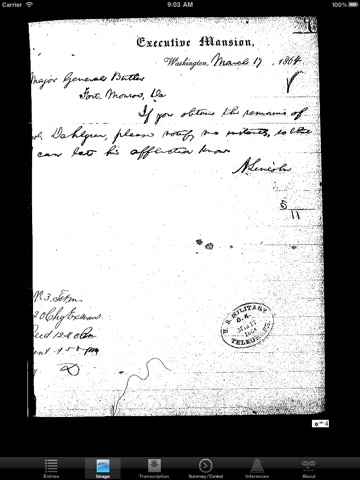 iPad
9:03 AM
100%
Executive Mansion,
Washington, March 17, 1864
Major General Butler
Fort Monroe, Va
If you obtain the remains of
Dahlgren, please notify me instantly, so that
I can let his afflicted know
A Lincoln
5
11
U.S. MILITARY
TELEGRAPH
Entries
Image
Transcription
Summary/Context
Inferences
About